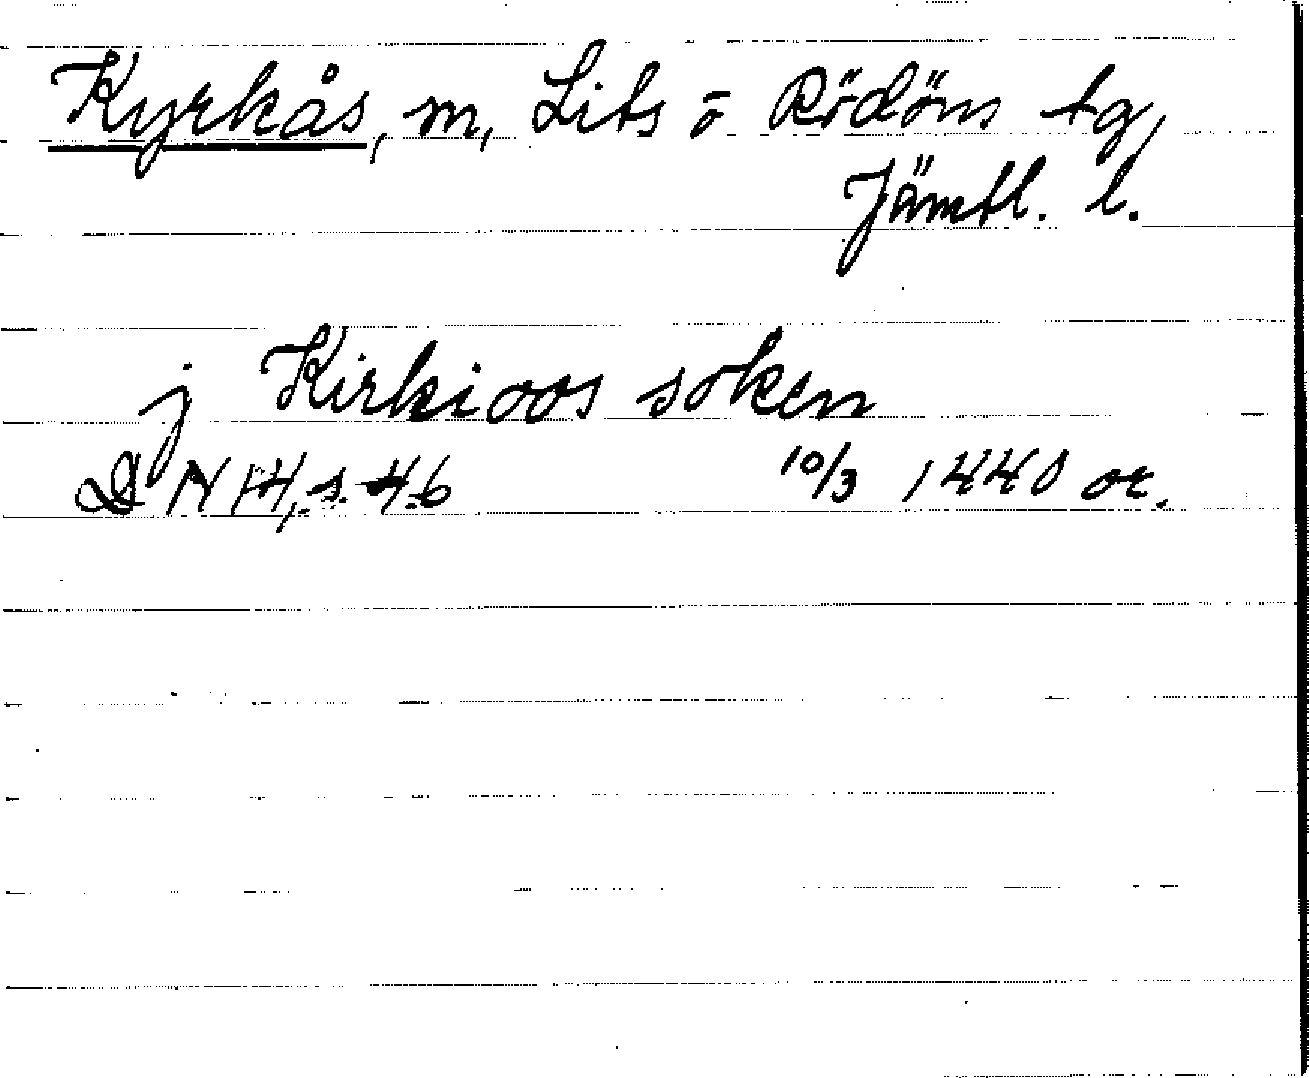 Kyrkås, m, Lits o Rödöns tg,
Jämtl. l.
j Kirkioos soken
DN 14, s. 46 10/3 1440 or.